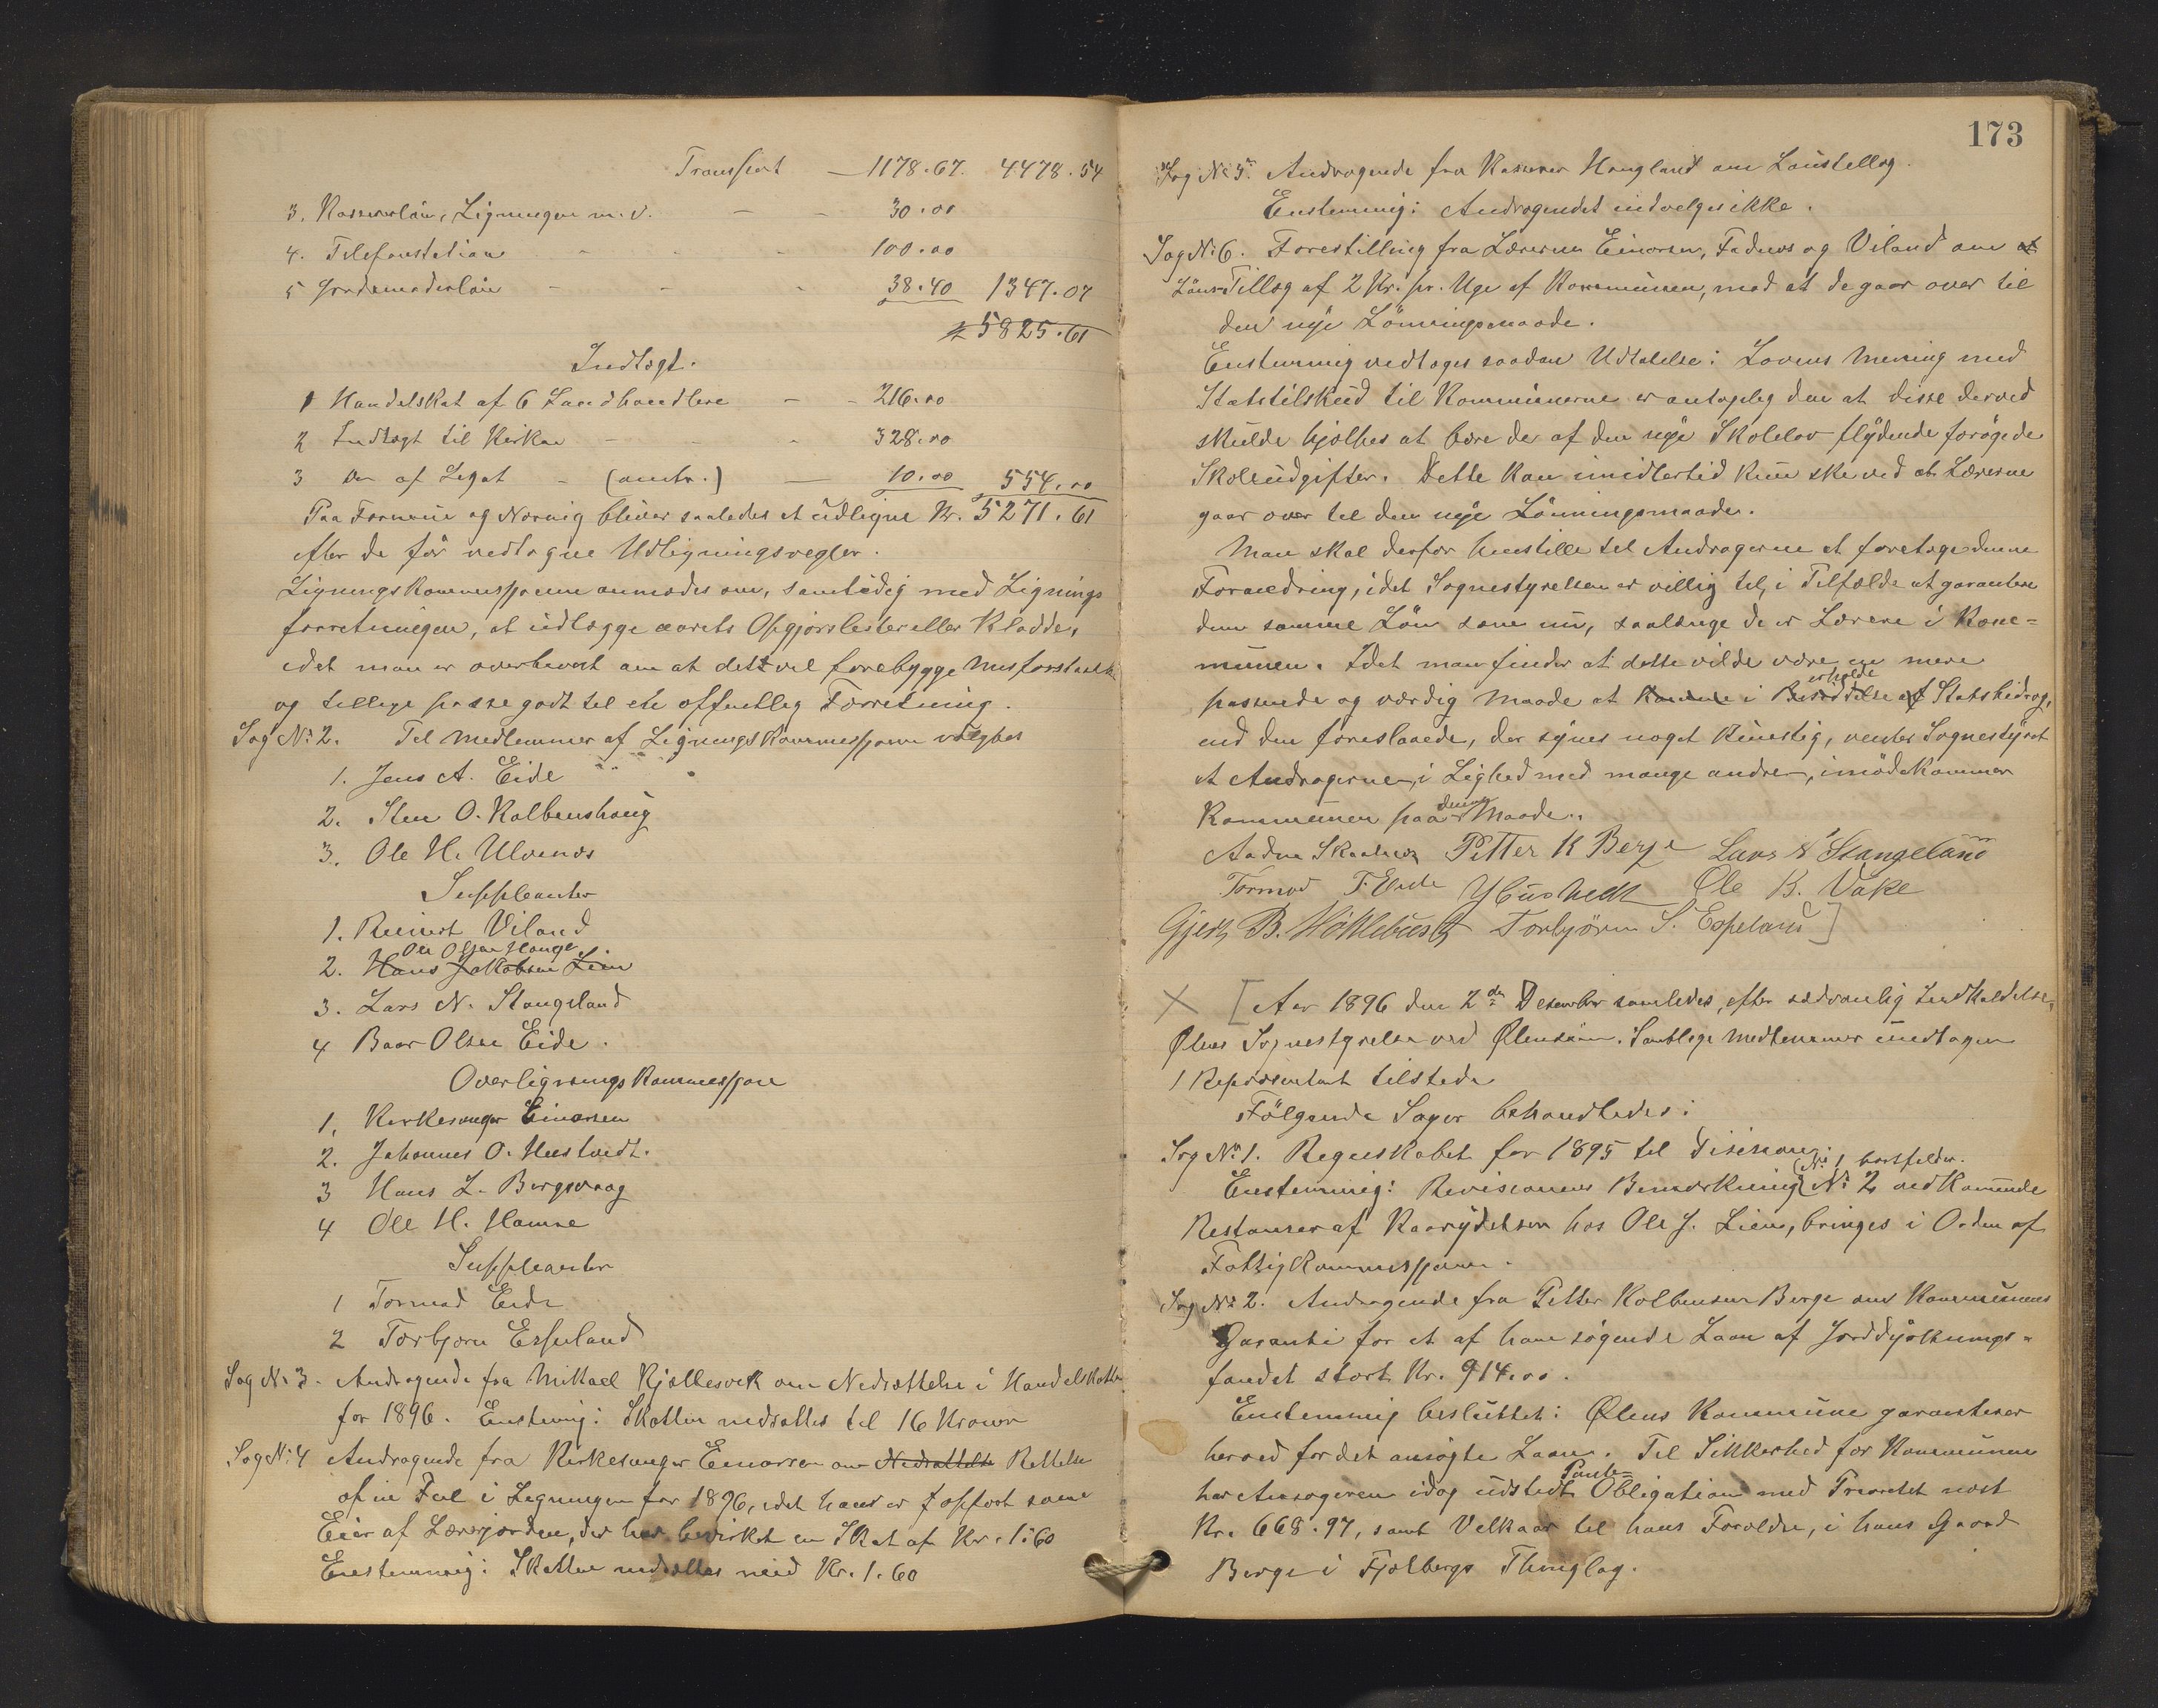 Transport — 1178.67. 4478.54
3. Kassererløn, Ligningen m.v. — - 30.00
4. Telefonstation - - - 100.00
5 Jordemoderløn - - - 38.40 1347.07
5825.61
Indtægt.
1 Handelskat af 6 Landhandlere - - 216.00
2 Indtægt til Kirken - - - 328.00
3 Do af Legat - (amtr.) — 10.00 554.00
Paa Formue og Næring bliver saaledes at udligne Kr. 5271.61
efter de før vedtagne Udligningsregler.
Ligningskommissjonen anmodes om, samtidig med Lignings
forretningen, at udlægge aarets Opgjørslister eller Kladder,
idet man er overbevist om at dette vil forebygge Misforstaaelse
og tillige passe godt til en offentlig Forretning.
Sag No 2. Til Medlemmer af Ligningskommissjonen valgtes
1. Jens A. Eide
2. Sten O. Kolbenshaug
3. Ole H. Ulvenes
Suppleanter
1. Reinert Viland
Ole Olsen Hauge
2. Hans Jakobsen Lien
3. Lars N. Stangeland
4 Baar Olsen Eide.
Overligningskommissjon
1. Kirkesanger Einarsen
2. Johannes O. Hustvedt.
3 Hans L. Bergsvaag
4 Ole H. Hamre
Suppleanter
1 Tormod Eide
2 Torbjørn Espeland
Sag No 3. Andragende fra Mikael Kjællesvik om Nedsættelse i Handelskatten
for 1896. Enstemig: Skatten nedsattes til 16 Kroner
Sag No 4 Andragende fra Kirkesanger Einarsen om Nedsættelse Rettelse
af en Feil i Ligningen for 1896, idet han er opført som
Eier af Lærerjorden, der har bevirket en Skat af Kr. 1.60
Enstemmig: Skatten nedsættes med Kr. 1.60
173
Sag No 5. Andragende fra Kasserer Haugland om Lønstillæg.
Enstemmig: Andragendet indvelges ikke.
Sag No 6. Forestilling fra Lærerne Einarsen, Fadnes og Viland om at
Løns-Tillæg af 2 Kr. pr. Uge af Kommunen, mod at de gaar over til
den nye Lønningsmaade.
Enstemmig vedtages saadan Udtalelse: Lovens Mening med
Statstilskud til Kommunerne er antagelig den at disse derved
skulde hjælpes at bære de af den nye Skolelov flydende forøgede
Skoleudgifter. Dette kan imidlertid kun ske ved at Lærerne
gaar over til den nye Lønningsmaade.
Man skal derfor henstille til Andragerne at foretage denne
Forandring, idet Sognestyrelsen er villig til, i Tilfælde at garantere
dem samme Løn som nu, saalænge de er Lærere i Kom=
munen. Idet man finder at dette vilde være en mere
erholde
passende og værdig Maade at komme i Besiddelse af Statsbidrag,
end den foreslaaede, der synes noget kunstig, venter Sognestyret
at Andragerne, i Lighed med mange andre, imødekommer
denne
Kommunen paa Maade.
Aadne Skaalnes Petter K Berge Lars N Stangeland
Tormod T. Eide Hustvedt Ole K. Vake
Gjert B. Høllebust Torbjørn S. Espeland]
X [Aar 1896 den 2den Desember samledes, efter sædvanlig Indkaldelse,
Ølens Sognestyrelse ved Ølensøen. Samtlige Medlemmer undtagen
1 Repræsentant tilstede
Følgende Sager behandledes:
Sag No 1. Regnskabet for 1895 til Disision:
(No 1 bortfalder.
Enstemmig: Revisionens Bemærkning No 2 vedkommende
Restanser af Kaarydelsen hos Ole J. Lien, bringes i Orden af
Fattigkommissjonen.
Sag No 2. Andragende fra Petter Kolbensen Berge om Kommunens
Garanti for et af ham søgende Laan af Jorddyrknings=
fondet stort Kr. 914.00.
Enstemmig besluttet: Ølens Kommune garanterer
herved for det ansøgte Laan. Til Sikkerhed for Kommunen
Pante=
har Ansøgeren idag udstedt Obligation med Prioritet næst
Kr. 668.97, samt Velkaar til hans Forældre, i hans Gaard
Berge i Fjelbergs Thinglag.